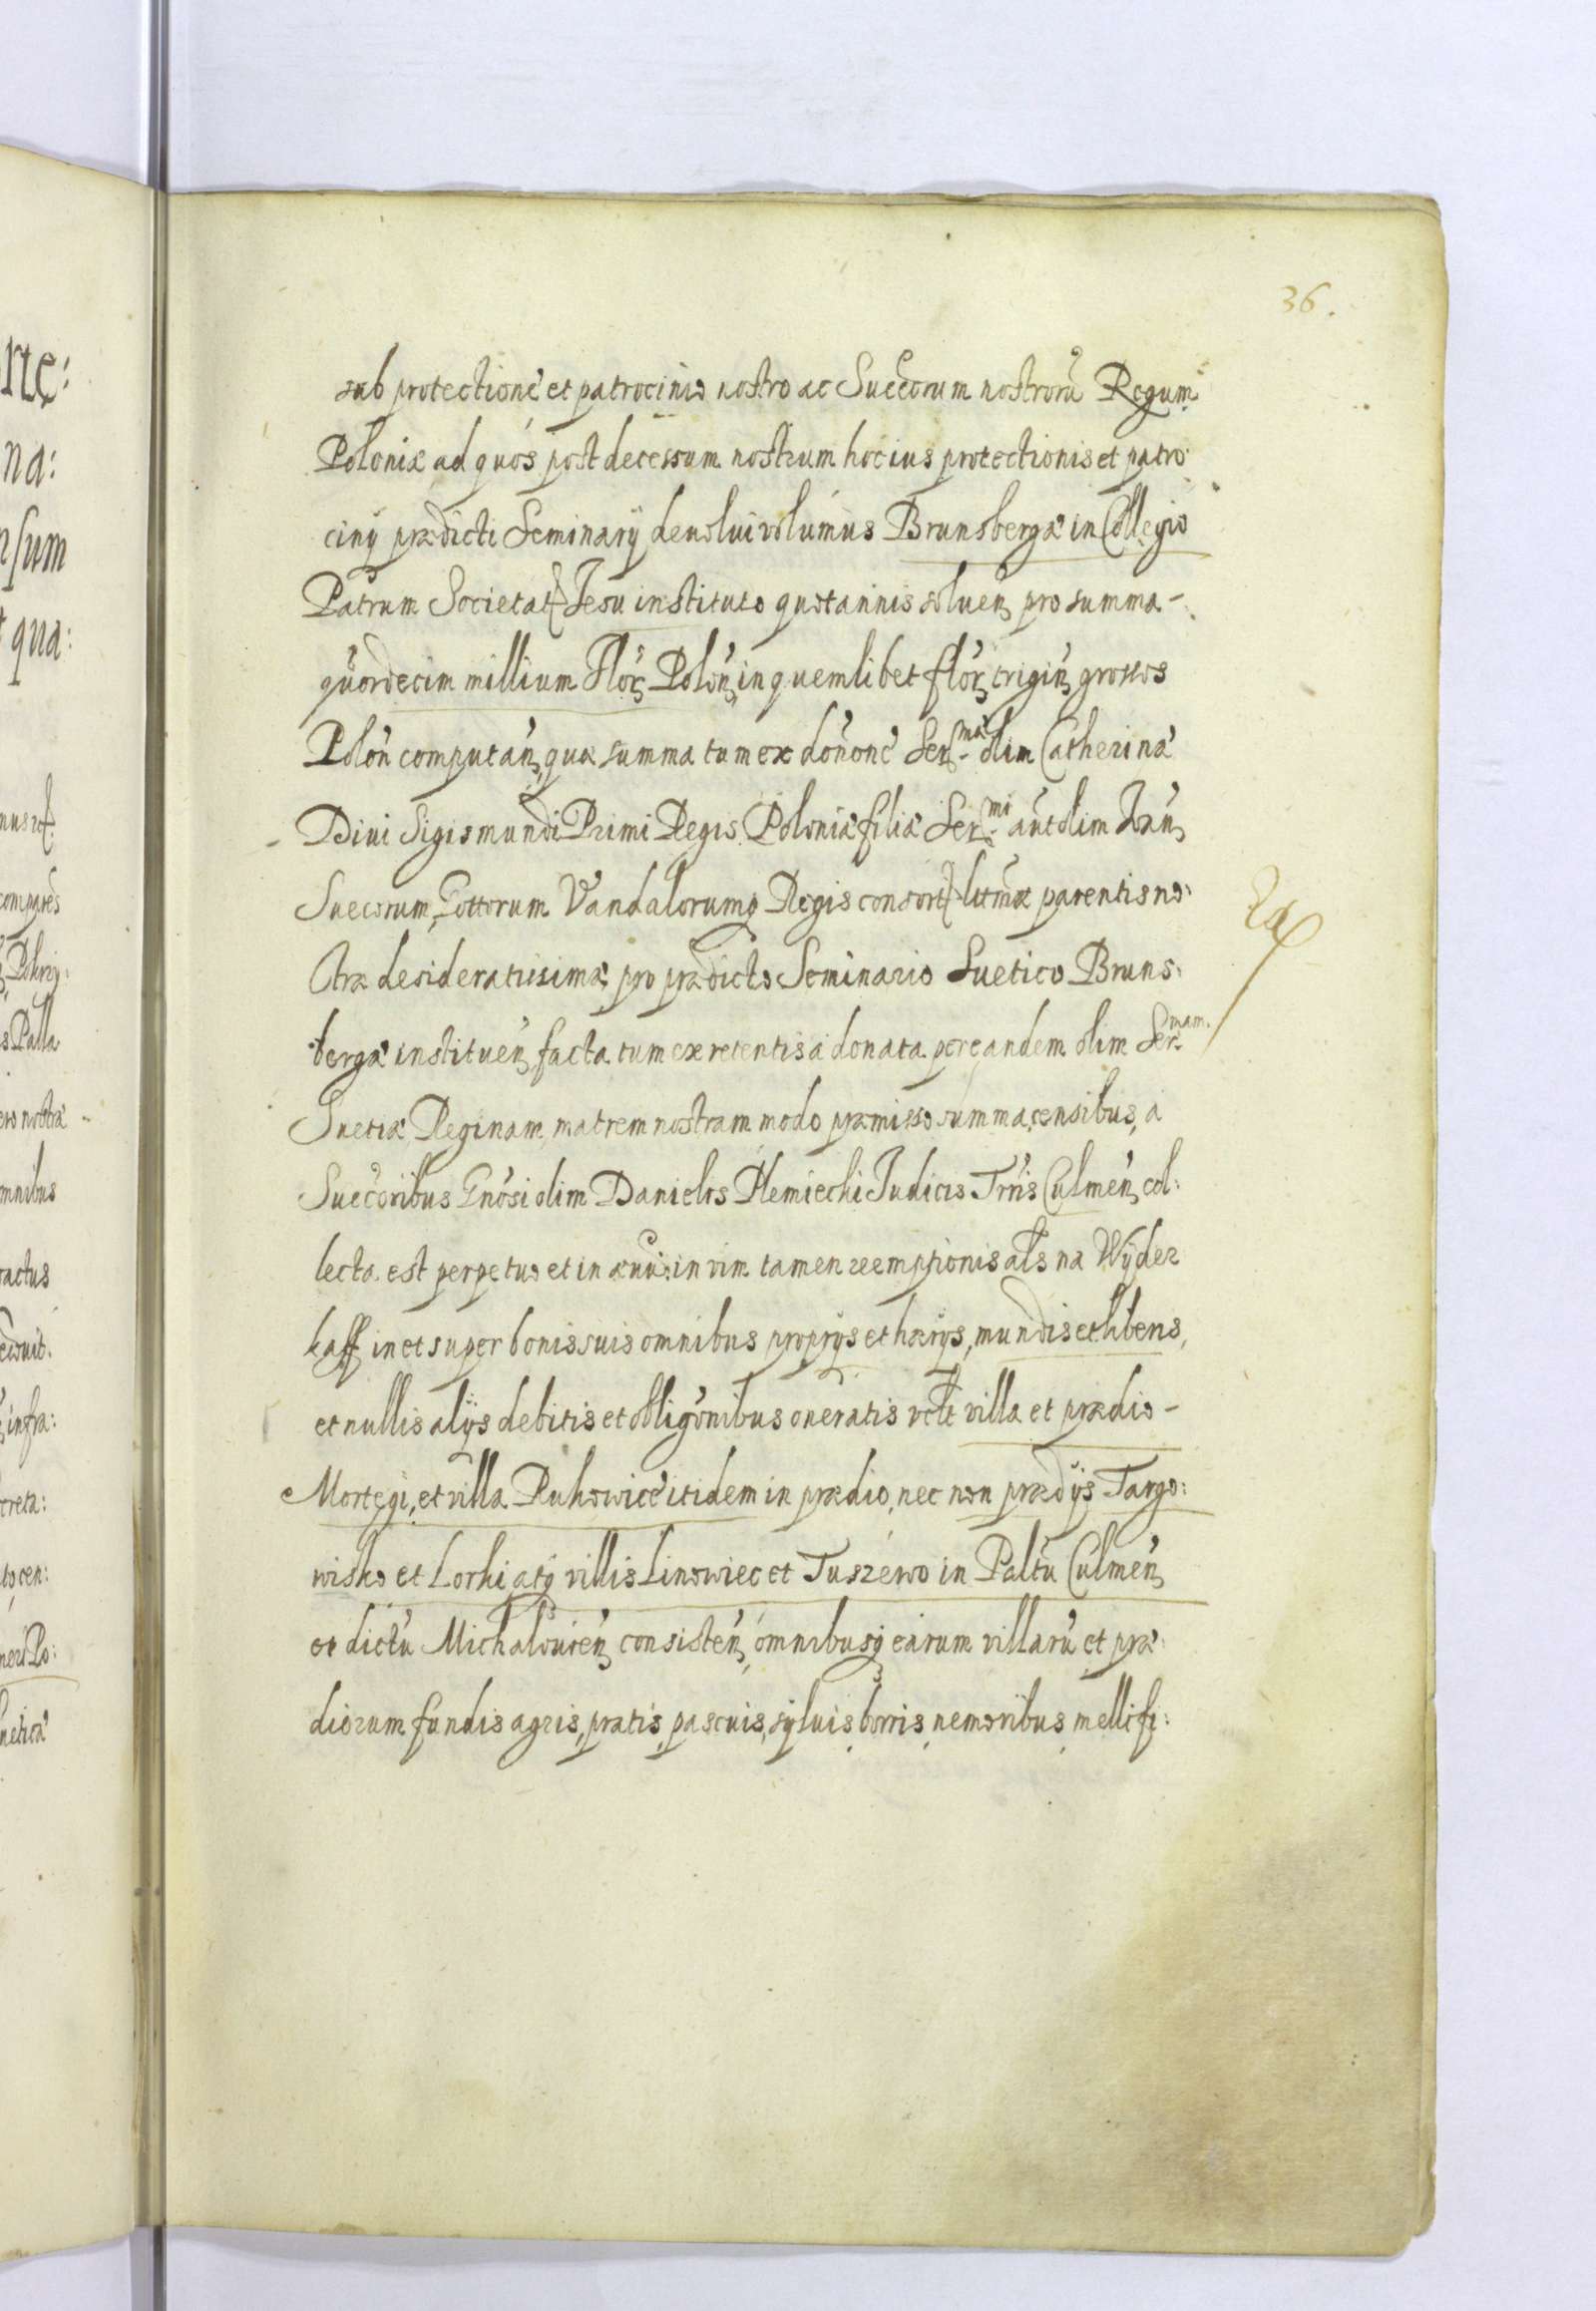 36.
sub protectione et patrocinio nostro ac Succorum nostrorũ Regum
Poloniæ ad quos post decessum nostrum hoc ius protectionis et patro:
cinÿ prædicti Seminarÿ deuolui volumus Brunsbergæ in Collegio
Patrum Societat Jesu instituto quotannis soluen pro summa -
quordecim millium Flor Polon, in quemlibet flor trigin grossos
Polon computan, quæ summa tum ex donone Ser^ma olim Catherinæ
Diui Sigismundi Primi Regis Poloniæ filiæ Ser^mi aut olim Joan
Suecorum, Gottorum Vandalorumq Regis consort lttmæ parentis no:
stræ desideratissimæ pro prædicto Seminario Suetico Bruns:
bergæ instituen facta tum ex retentis a donata per eandem olim Ser^mam.
Suetiæ Reginam, matrem nostram modo præmisso summa, censibus, a
Succoribus Gnosi olim Danielis Plemiechi Judicis Trris Culmen, col:
lecta est perpetuo et in æuũ: in vim tamen reemptionis als na Wÿder
kaff in et super bonis suis omnibus proprÿs et hærÿs, mundis et libens,
et nullis alÿs debitis et obligonibus oneratis vclt villa et prædio -
Mortęgi, et villa Ruhowice itidem in prædio, nec non prædÿs Targo:
wisko et Lorki atq villis Linowiec et Tuszewo in Paltu Culmen
et dictũ Michalouien consisten, omnibusq earum villarũ et præ:
diorum fundis agris, pratis, pascuis, sÿluis, borris, nemoribus, mellifi:
rte:
na:
nsum
qua:
Palla
mnibus
ractus
infra:
creta: